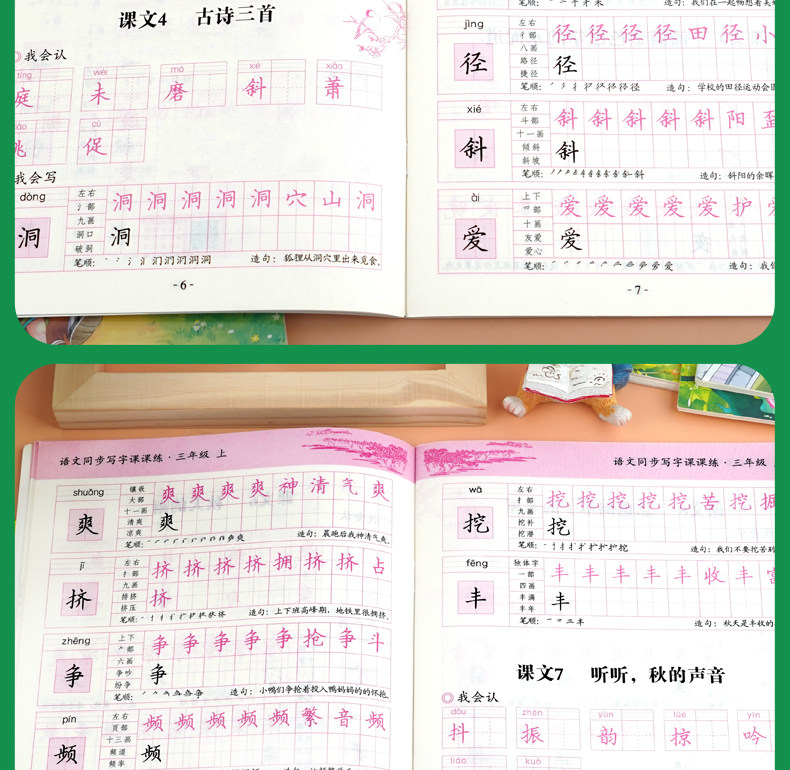 课文4 古诗三首
我会认
wèi mó xié xiāo
庭 未 磨 斜 萧
cù
挑 促
我会写
dòng
洞
左右
氵部
九画
洞口
破洞
洞 洞 洞 洞 洞 穴 山 洞
洞
笔顺:
造句:狐狸从洞穴里出来觅食。
-6-
jìng
径
左右
彳部
八画
路径
捷径
径 径 径 径 田 径 小
径
笔顺:
造句:学校的田径运动会
xié
斜
左右
斗部
十一画
倾斜
斜坡
斜 斜 斜 斜 斜 阳 歪
斜
笔顺:
造句:斜阳的余晖
ài
爱
上下
爫部
十画
友爱
爱心
爱 爱 爱 爱 爱 护 爱
爱
笔顺:
造句:我
-7-
语文同步写字课课练·三年级 上
shuǎng
爽
镶嵌
大部
十一画
清爽
凉爽
爽 爽 爽 爽 神 清 气 爽
爽
笔顺:
造句:晨跑后我神清气爽。
jǐ
挤
左右
扌部
九画
拥挤
挤压
挤 挤 挤 挤 拥 挤 挤 占
挤
笔顺:
造句:上下班高峰期,地铁里很拥挤。
zhēng
争
上下
⺈部
六画
争吵
纷争
争 争 争 争 争 抢 争 斗
争
笔顺:
造句:小鸭们争抢着投入鸭妈妈的的怀抱。
pín
频
左右
页部
十三画
频道
频率
频 频 频 频 频 繁 音 频
频
语文同步写字课课练·三年级
wā
挖
左右
扌部
九画
挖补
挖潜
挖 挖 挖 挖 挖 苦 挖 掘
挖
笔顺:
造句:我们不要挖苦别
fēng
丰
独体字
一部
四画
丰满
丰年
丰 丰 丰 丰 丰 收 丰 富
丰
笔顺:
造句:秋天是丰收的
课文7 听听,秋的声音
我会认
dǒu zhèn yùn lüè yín
抖 振 韵 掠 吟
liáo kuò